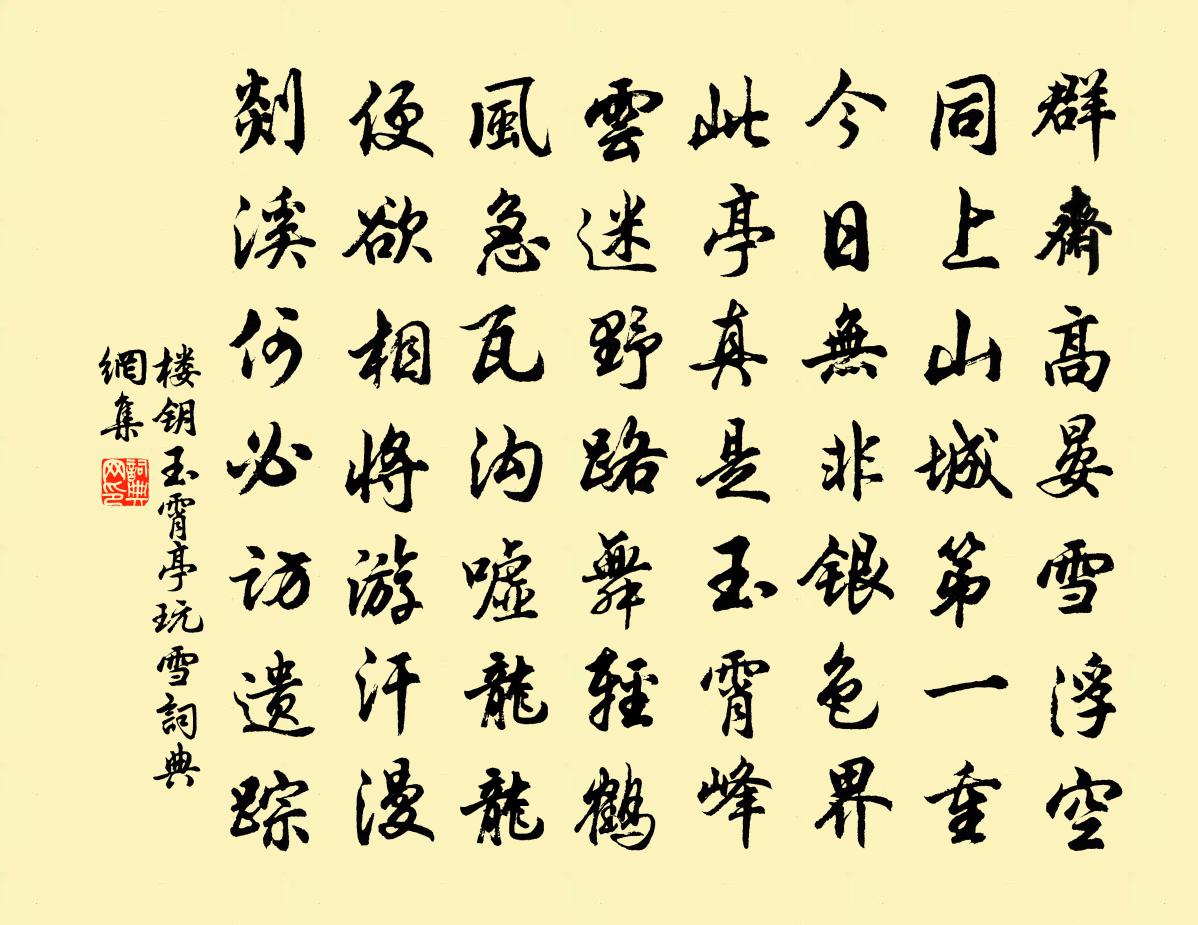 群齋高晏雪浮空
同上山城第一重
今日無非銀色界
此亭真是玉霄峰
雲迷野路舞輕鶴
風急瓦沟嘘龍龍
便欲相將游汗漫
剡溪何必訪遗踪
楼钥玉霄亭玩雪詞典
網集
詞典
网印